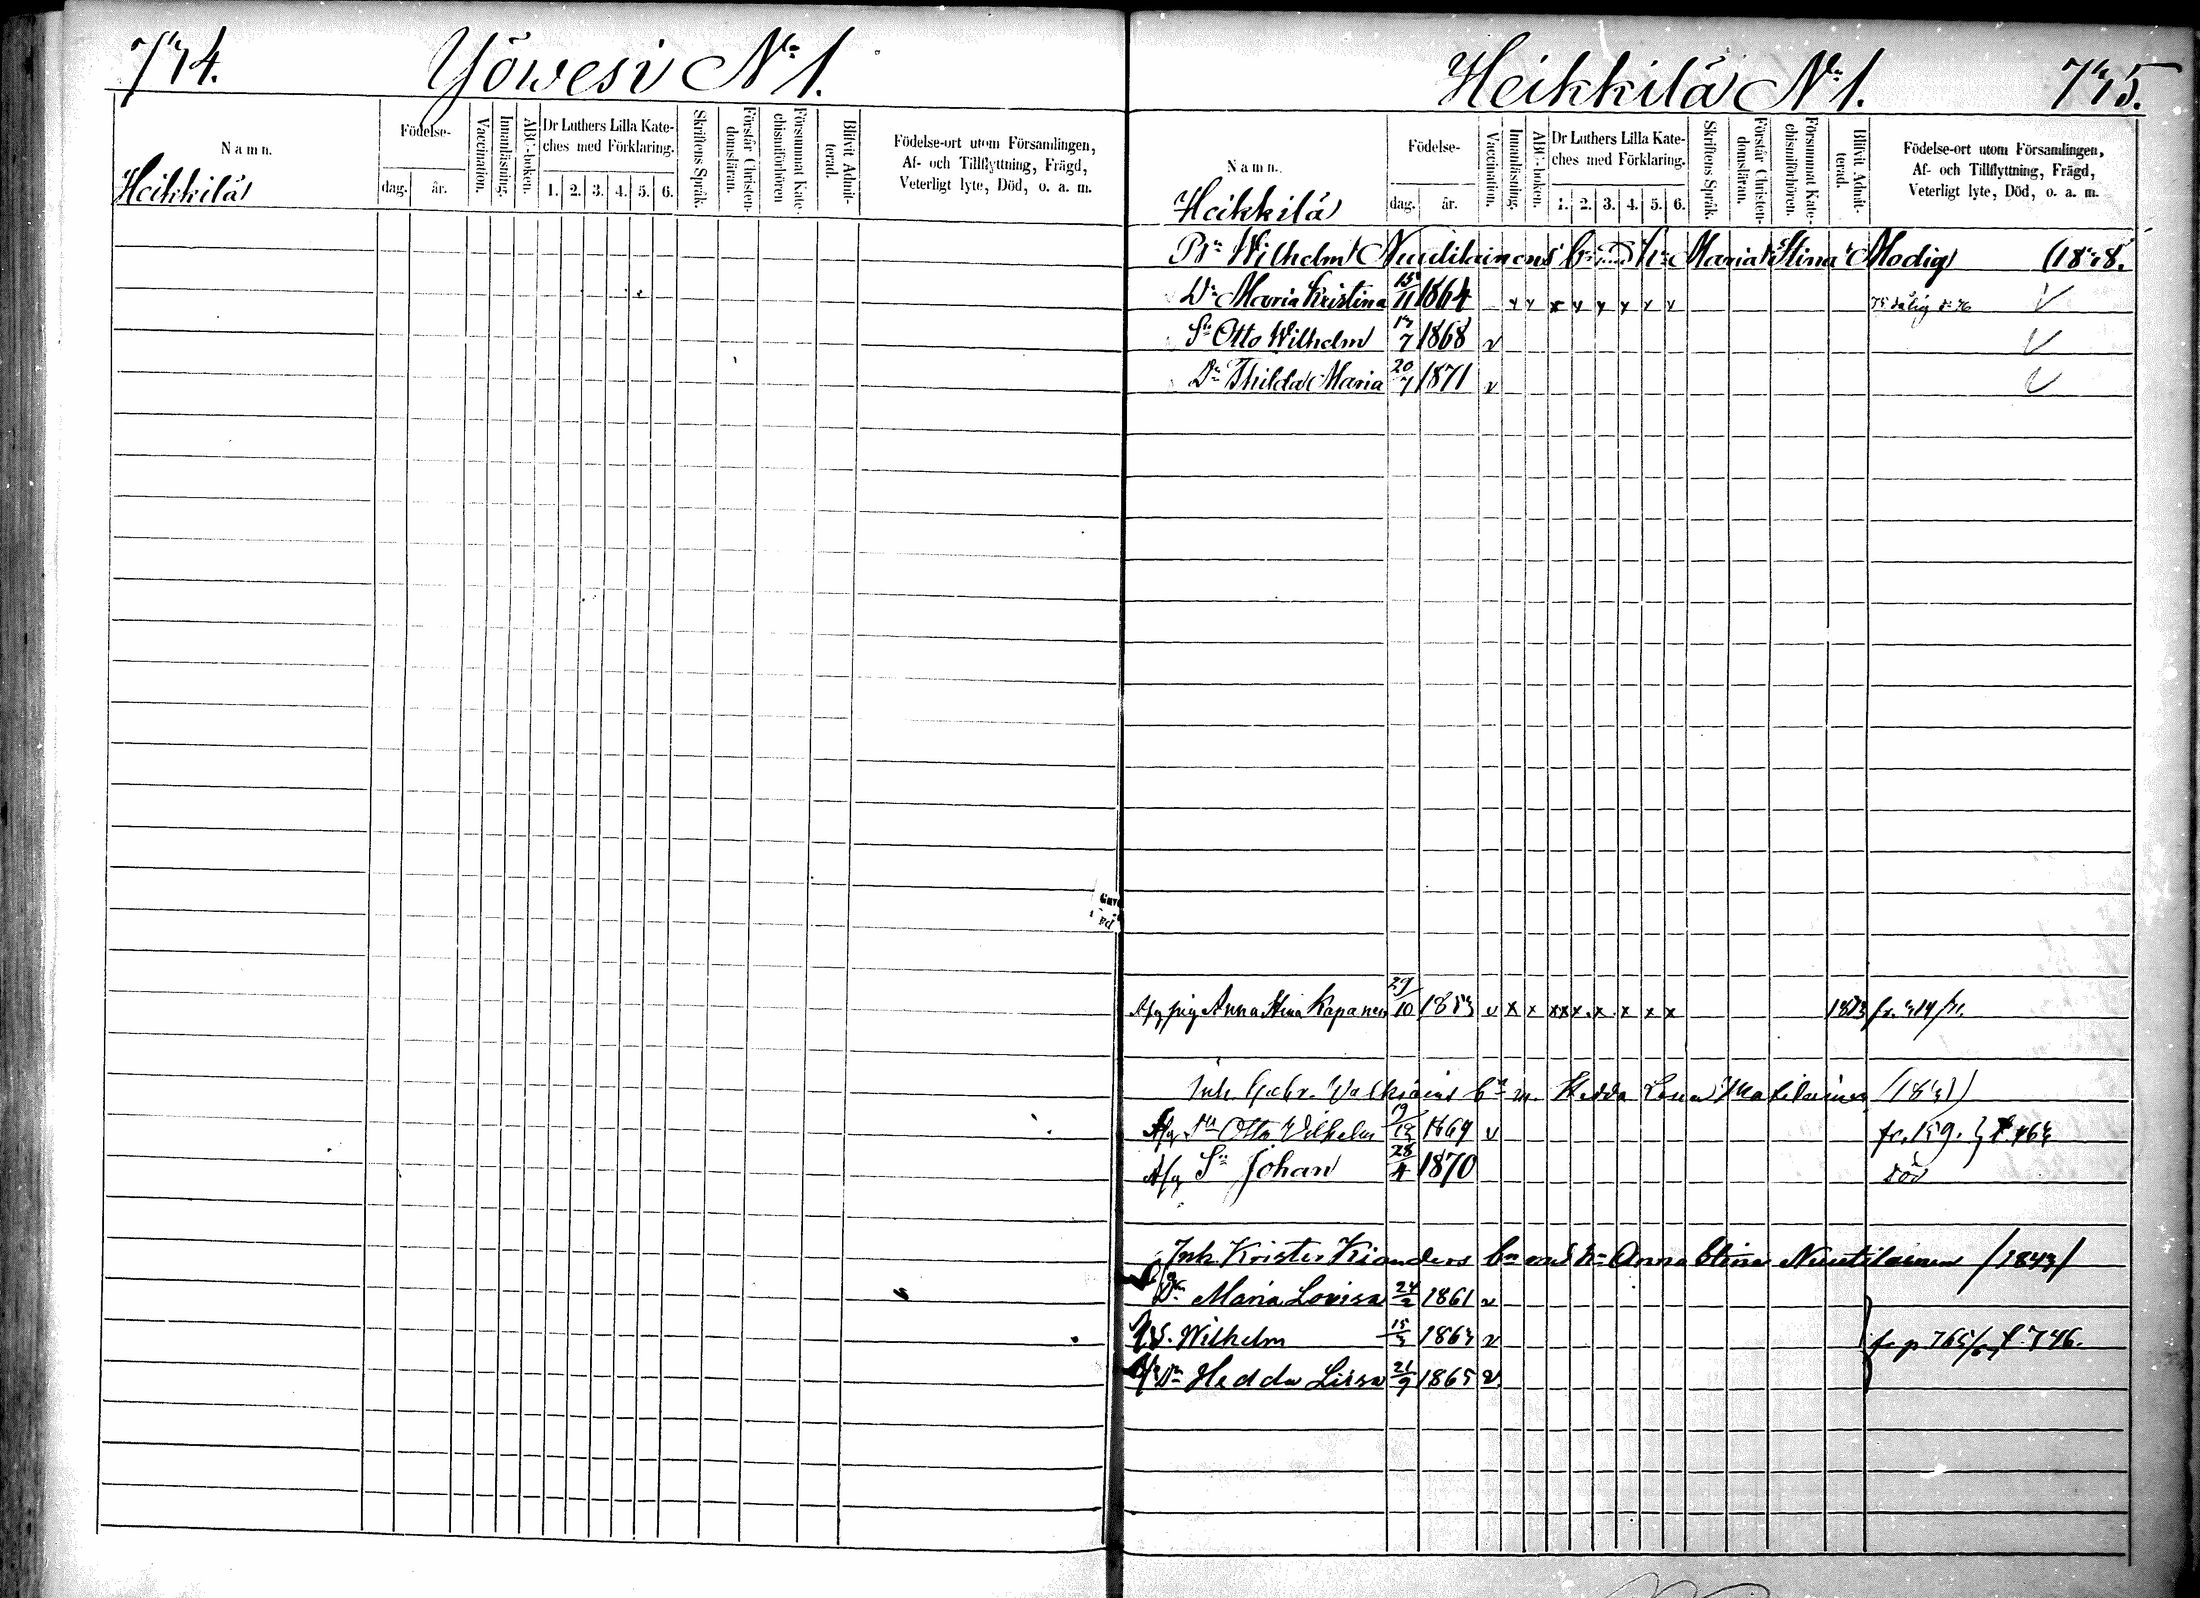 774. Yöwesi No 1.
Namn. Födelse- dag. år. Vaccination. Innanläsning. ABC-boken. Dr Luthers Lilla Kateches med Förklaring. 1. 2. 3. 4. 5. 6. Skriftens Språk. Förstår Christendomsläran. Försummat Katechismiförhören Blifvit Admitterad. Födelse-ort utom Församlingen, Af- och Tillflyttning, Frägd, Veterligt lyte, Död, o. a. m.
Heikkilä
Heikkilä No 1. 775.
Namn. Födelse- dag. år. Vaccination. Innanläsning. ABC-boken. Dr Luthers Lilla Kateches med Förklaring. 1. 2. 3. 4. 5. 6. Skriftens Språk. Förstår Christendomsläran. Försummat Katechismiförhören. Blifvit Admitterad. Födelse-ort utom Församlingen, Af- och Tillflyttning, Frägd, Veterligt lyte, Död, o. a. m.
Heikkilä
Wilhelm bn med hu Maria Stina Modig
Dr Maria Kristina 15/11 1864 x x x x x x x x
Sn Otto Wilhelm 17/7 1868 v
Dr Thilda Maria 20/7 1871 v
pig Anna Stina Kapanen 29/10 v x x x x x x x x x
Inh. bn m. Hedda Lena
Afg Sn Otto Vilhelm 1869 v fr. 159.
Afg Sn Johan 28/4 1870 död
Inh Krister Kianders bn med hu Anna Stina Nuutilainen (1843)
Dr Maria Lovisa 24/2 1861 v
S. Wilhelm 15/3 1863 v fr p. 765 t. 746.
Dr Hedda Lissa 21/9 1865 v